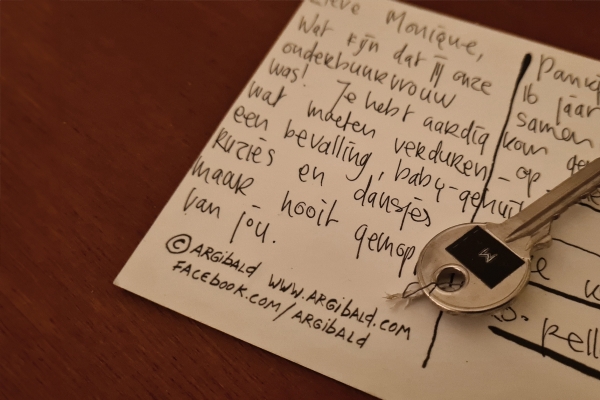 Lieve Monique,
Wat fijn dat jij onze
onderbuurvrouw
was! Je hebt aardig
wat moeten verduren
een bevalling, baby-gehuil
ruzies en dansjes
maar nooit gemop
van jou.
© ARGIBALD WWW.ARGIBALD.COM
FACEBOOK.COM/ARGIBALD
16 jaar
samen
op
M